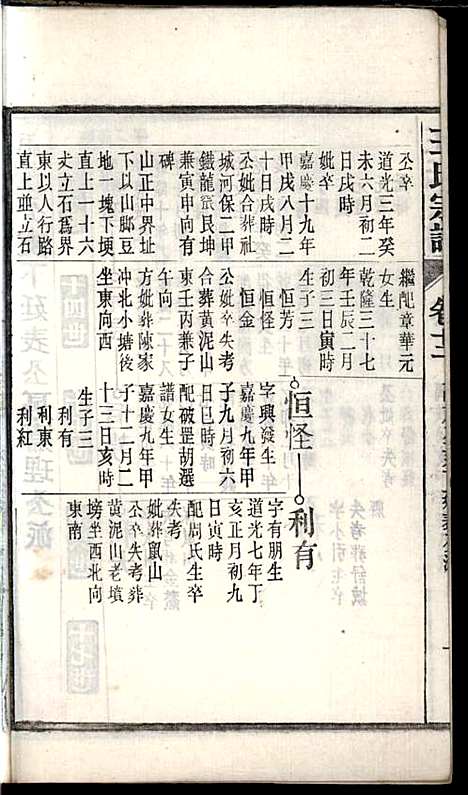 王氏宗譜
卷十二
公卒
道光三年癸
未六月初二
日戌時
妣卒
嘉慶十九年
甲戌八月二
十日戌時
公妣合葬社
城河保二甲
鐵龍嘴艮坤
兼寅申向有
碑
山正中界址
下以山脚豆
地一塊下埂
直上一十六
丈立石為界
東以人行路
直上垣立石
繼配章華元
女生
乾隆三十七
年壬辰二月
初三日寅時
生子三
恒芳
恒怪
恒金
公妣卒失考
合葬黃泥山
東壬丙兼子
午向
方妣葬陳家
冲北小塘後
坐東向西
恒怪
字興發生
嘉慶九年甲
子九月初六
日巳時
配罡胡選
譜女生
嘉慶九年甲
子十二月二
十三日亥時
生子三
利有
利東
利紅
利有
字有朋生
道光七年丁
亥正月初九
日寅時
配周氏生卒
失考
妣葬鼠山
公卒失考葬
黃泥山老墳
塝坐西北向
東南